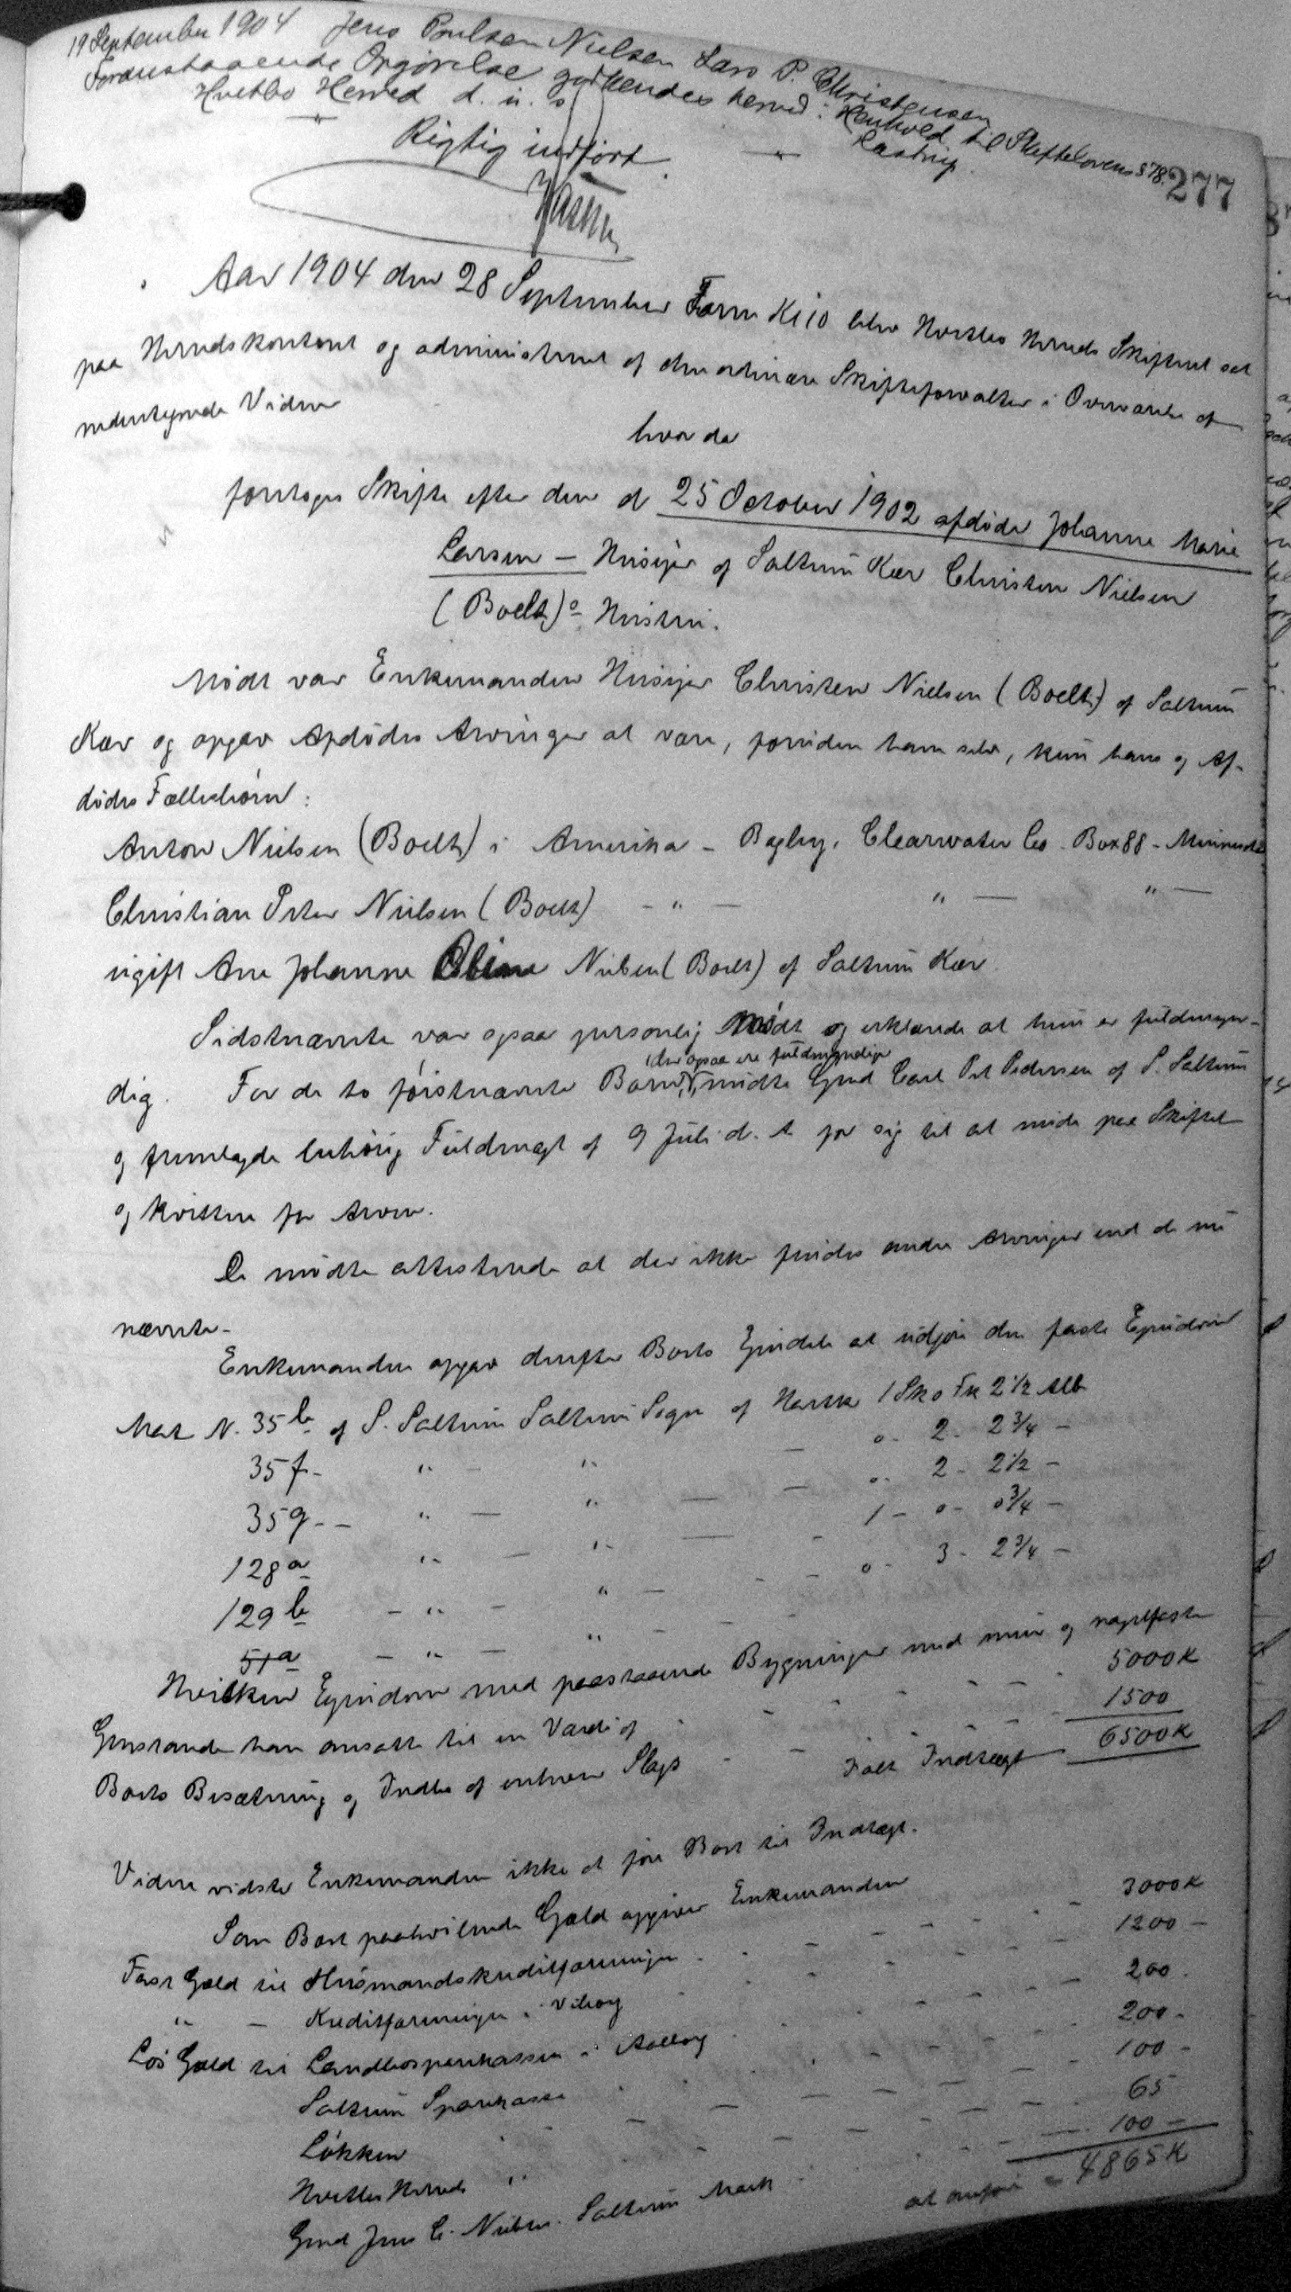 19 September 1904 Jens Poulsen Nielsen Lars P. Christensen
Foranstaaende Opgørelse godkendes herved i Henhold til Skiftelovens § 78.
Hvetbo Herred d. u. s. Kastrup.
Rigtig indført
277
Aar 1904 den 28 September Form Kl 10 blev Hvetbo Herreds Skifteret sat
paa Herredskontoret og administreret af den ordinære Skifteforvalter i Overværelse af
undertegnede Vidner
hvor da
foretoges Skifte efter den d 25 October 1902 afdøde Johanne Marie
Larsen – Husejer af Saltum Kær Christen Nielsen
(Boelt)s Hustru.
Mødt var Enkemanden Husejer Christen Nielsen (Boelt) af Saltum
Kær og opgav Afdødes Arvinger at være, foruden ham selv, kun hans og Af-
dødes Fællesbørn:
Anton Nielsen (Boelt) i Amerika – Bagley, Clearwater Co. Box 88 – Minnesota
Christian Peter Nielsen (Boelt) - " - " - " -
ugift Ane Johanne Oline Nielsen (Boelt) af Saltum Kær
Sidstnævnte var ogsaa personlig Mødt og erklærede at hun er fuldmyn-
dig. For de to førstnævnte Børn, (der ogsaa ere fuldmyndige) mødte Grd Carl Pet Pedersen af S. Saltum
og fremlagde behørig Fuldmagt af 9 Juli d. A for sig til at møde paa Skiftet
og kvittere for Arven.
De mødte attesterede at der ikke findes andre Arvinger end de nu
nævnte –
Enkemanden opgav derefter Boets Ejendele at udgjøre den faste Ejendom
Mat N. 35 b af S. Saltum Saltum Sogn af Hartk 1 Sk 0 Fk 2 1/2 Alb
35 f - " - " - 0 - 2 - 2 3/4 -
35 g - - " - " - 0 - 2 - 2 1/2 -
128 a " - " - 1 - 0 - 0 3/4 -
129 b - " - " - 0 - 3 - 2 3/4 -
51 a - " - " -
Hvilken Ejendom med paastaaende Bygninger med mur og nagelfaste
Genstande han ansatte til en Værdi af 5000 K
Boets Besætning og Indbo af enhver Slags 1500
Ialt Indtægt 6500 K
Videre vidste Enkemanden ikke at føre Boet til Indtægt.
Som Boet paahvilende Gæld opgiver Enkemanden
Fast Gæld til Husmandskreditforeningen 3000 K
" - Kreditforeningen i Viborg 1200 -
Løs Gæld til Landbosparekassen i Aalborg 200
Saltum Sparekasse 200 -
Løkken 100 -
Hvetbo Herreds " 65
Grd Jens C. Nielsen Saltum Mark 100 -
at overføre = 4865 K